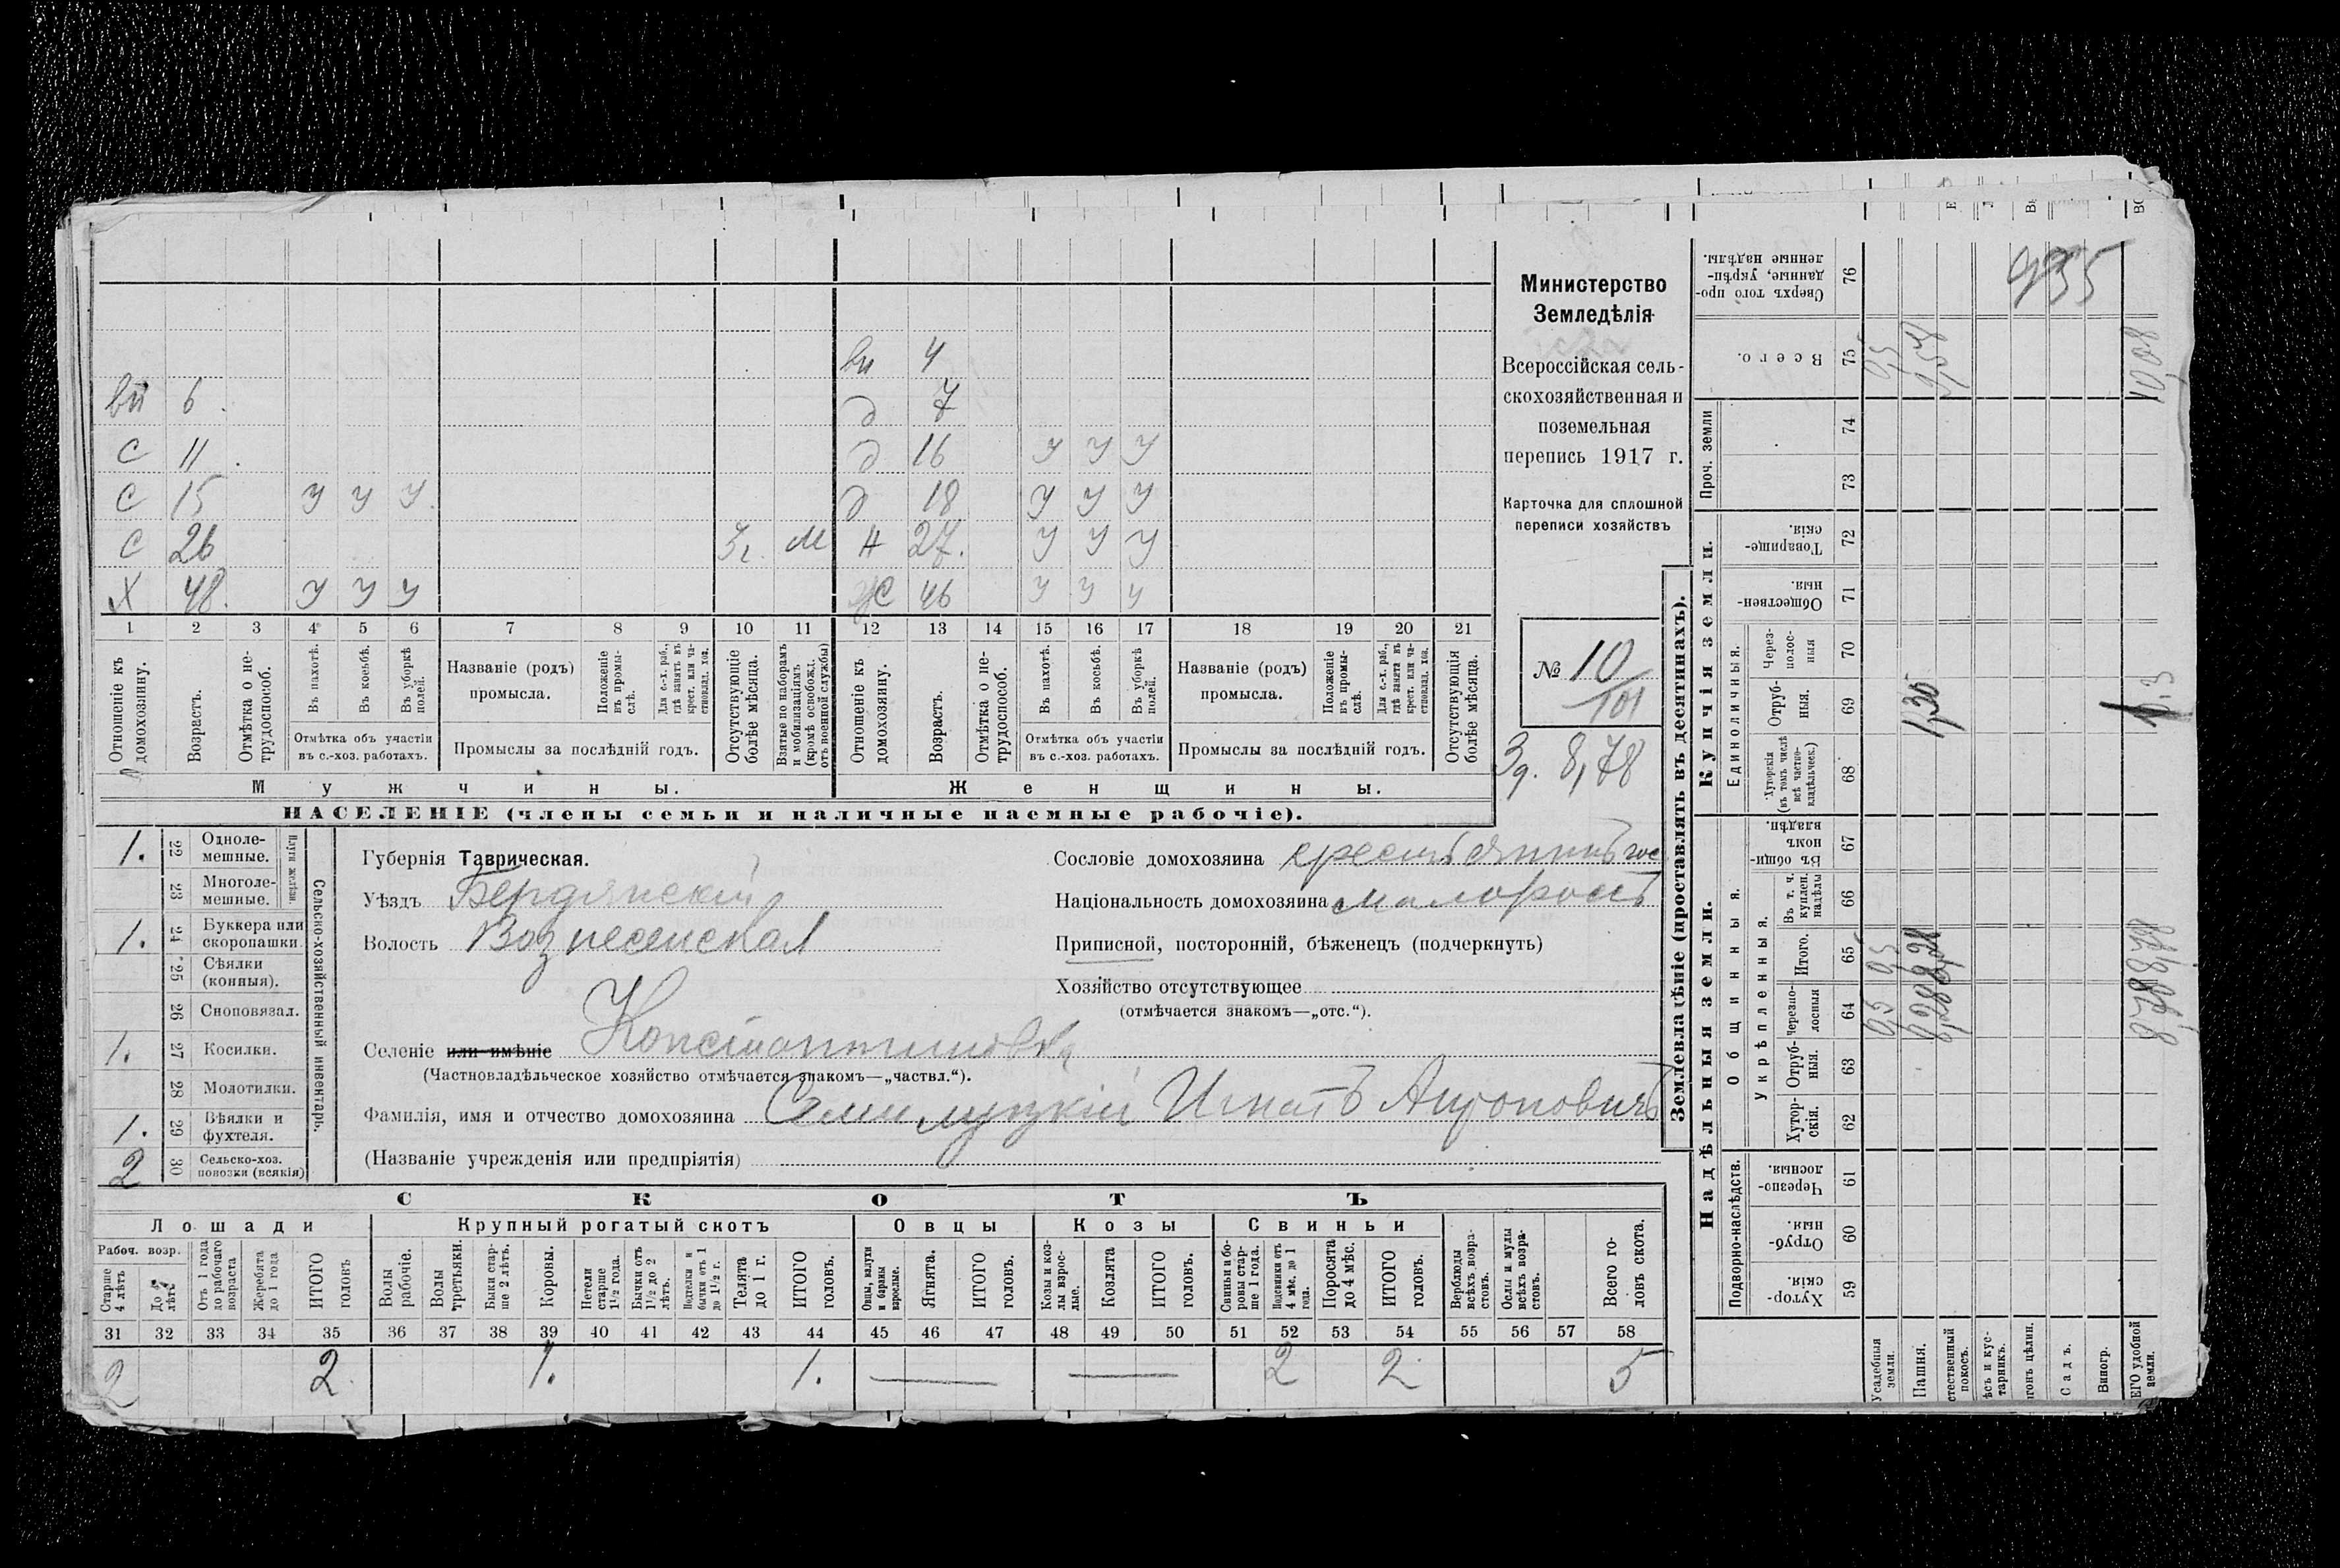 вн 4
вн 6. д 7
С 11. д 16 у у у
С 15 у у у. д 18 у у у
С 26 3г. м н 27. у у у
Х 48. у у у ж 46 у у у
1 2 3 4 5 6 7 8 9 10 11 12 13 14 15 16 17 18 19 20 21
Отношеніе къ домохозяину.
Возрастъ.
Отмѣтка о нетрудоспособ.
Въ пахотѣ.
Въ косьбѣ.
Въ уборкѣ полей.
Отмѣтка объ участіи въ с.-хоз. работахъ.
Названіе (родъ) промысла.
Положеніе въ промыслѣ.
Для с.-х. раб., гдѣ занятъ въ крест. или частновлад. хоз.
Промыслы за послѣдній годъ.
Отсутствующіе болѣе мѣсяца.
Взятые по наборамъ и мобилизаціямъ (кромѣ освобожд. отъ военной службы)
Отношеніе къ домохозяину.
Возрастъ.
Отмѣтка о нетрудоспособ.
Въ пахотѣ.
Въ косьбѣ.
Въ уборкѣ полей.
Отмѣтка объ участіи въ с.-хоз. работахъ.
Названіе (родъ) промысла.
Положеніе въ промыслѣ.
Для с.-х. раб., гдѣ занята въ крест. или частновлад. хоз.
Промыслы за послѣдній годъ.
Отсутствующія болѣе мѣсяца.
Мужчины. Женщины.
НАСЕЛЕНІЕ (члены семьи и наличные наемные рабочіе).
Министерство
Земледѣлія
Всероссійская сель-
скохозяйственная и
поземельная
перепись 1917 г.
Карточка для сплошной
переписи хозяйствъ
№ 10
101
8,78
1. 22 Одноле-мешные.
23 Многоле-мешные.
Плуги желѣзн.
1. 24 Буккера или скоропашки.
25 Сѣялки (конныя).
26 Сноповязал.
1. 27 Косилки.
28 Молотилки.
1. 29 Вѣялки и фухтеля.
2 30 Сельско-хоз. повозки (всякія)
Сельско-хозяйственный инвентарь.
Губернія Таврическая.
Уѣздъ Бердянскій
Волость Вознесенская
Селеніе или имѣніе Константиновка
(Частновладѣльческое хозяйство отмѣчается знакомъ—„частвл.“).
Фамилія, имя и отчество домохозяина Семилуцкій Игнатъ
(Названіе учрежденія или предпріятія)
Сословіе домохозяина крестьянинъ
Національность домохозяина малороссъ
Приписной, посторонній, бѣженецъ (подчеркнуть)
Хозяйство отсутствующее
(отмѣчается знакомъ—„отс.“).
СКОТЪ
Лошади Крупный рогатый скотъ Овцы Козы Свиньи
Рабоч. возр.
Старше 4 лѣтъ
До 4 лѣтъ
Отъ 1 года до рабочаго возраста
Жеребята до 1 года
ИТОГО головъ
Волы рабочіе.
Волы третьяки.
Быки старше 2 лѣтъ.
Коровы.
Нетели старше 1½ года.
Бычки отъ 1½ до 2 лѣтъ.
Подтелки и бычки отъ 1 до 1½ г.
Телята до 1 г.
ИТОГО головъ.
Овцы, валухи и бараны взрослые.
Ягнята.
ИТОГО головъ.
Козы и козлы взрослые.
Козлята
ИТОГО головъ.
Свиньи и боровы старше 1 года.
Подсвинки отъ 4 мѣс. до 1 года.
Поросята до 4 мѣс.
ИТОГО головъ.
Верблюды всѣхъ возрастовъ.
Ослы и мулы всѣхъ возрастовъ.
Всего головъ скота.
31 32 33 34 35 36 37 38 39 40 41 42 43 44 45 46 47 48 49 50 51 52 53 54 55 56 57 58
2 2 1. 1. — — 2 2 5
Землевладѣніе (проставлять въ десятинахъ).
Надѣльныя земли. Купчія земли. Проч. земли
Подворно-наслѣдств.
Общинныя.
Укрѣпленныя.
Единоличныя.
Хуторскія. 59
Отрубныя. 60
Черезполосныя. 61
Хуторскія. 62
Отрубныя. 63
Черезполосныя 64
Итого. 65
Въ т. ч. куплен. надѣлы 66
Въ общинномъ владѣн. 67
Хуторскія (въ томъ числѣ всѣ частновладѣльческ.) 68
Отрубныя. 69
Черезполосныя 70
Общественныя. 71
Товарищескія. 72
73
74
Всего. 75
Сверхъ того проданные, укрѣпленные надѣлы. 76
Усадебныя земли. 0,5 0,5 0,5
Пашня. 8,28 8,28 1,30 9,58
стественный покосъ.
ѣсъ и кустарникъ.
гонъ цѣлин.
Садъ.
Виногр.
ЕГО удобной земли. 8,78 8,78 1,3 10,08
935